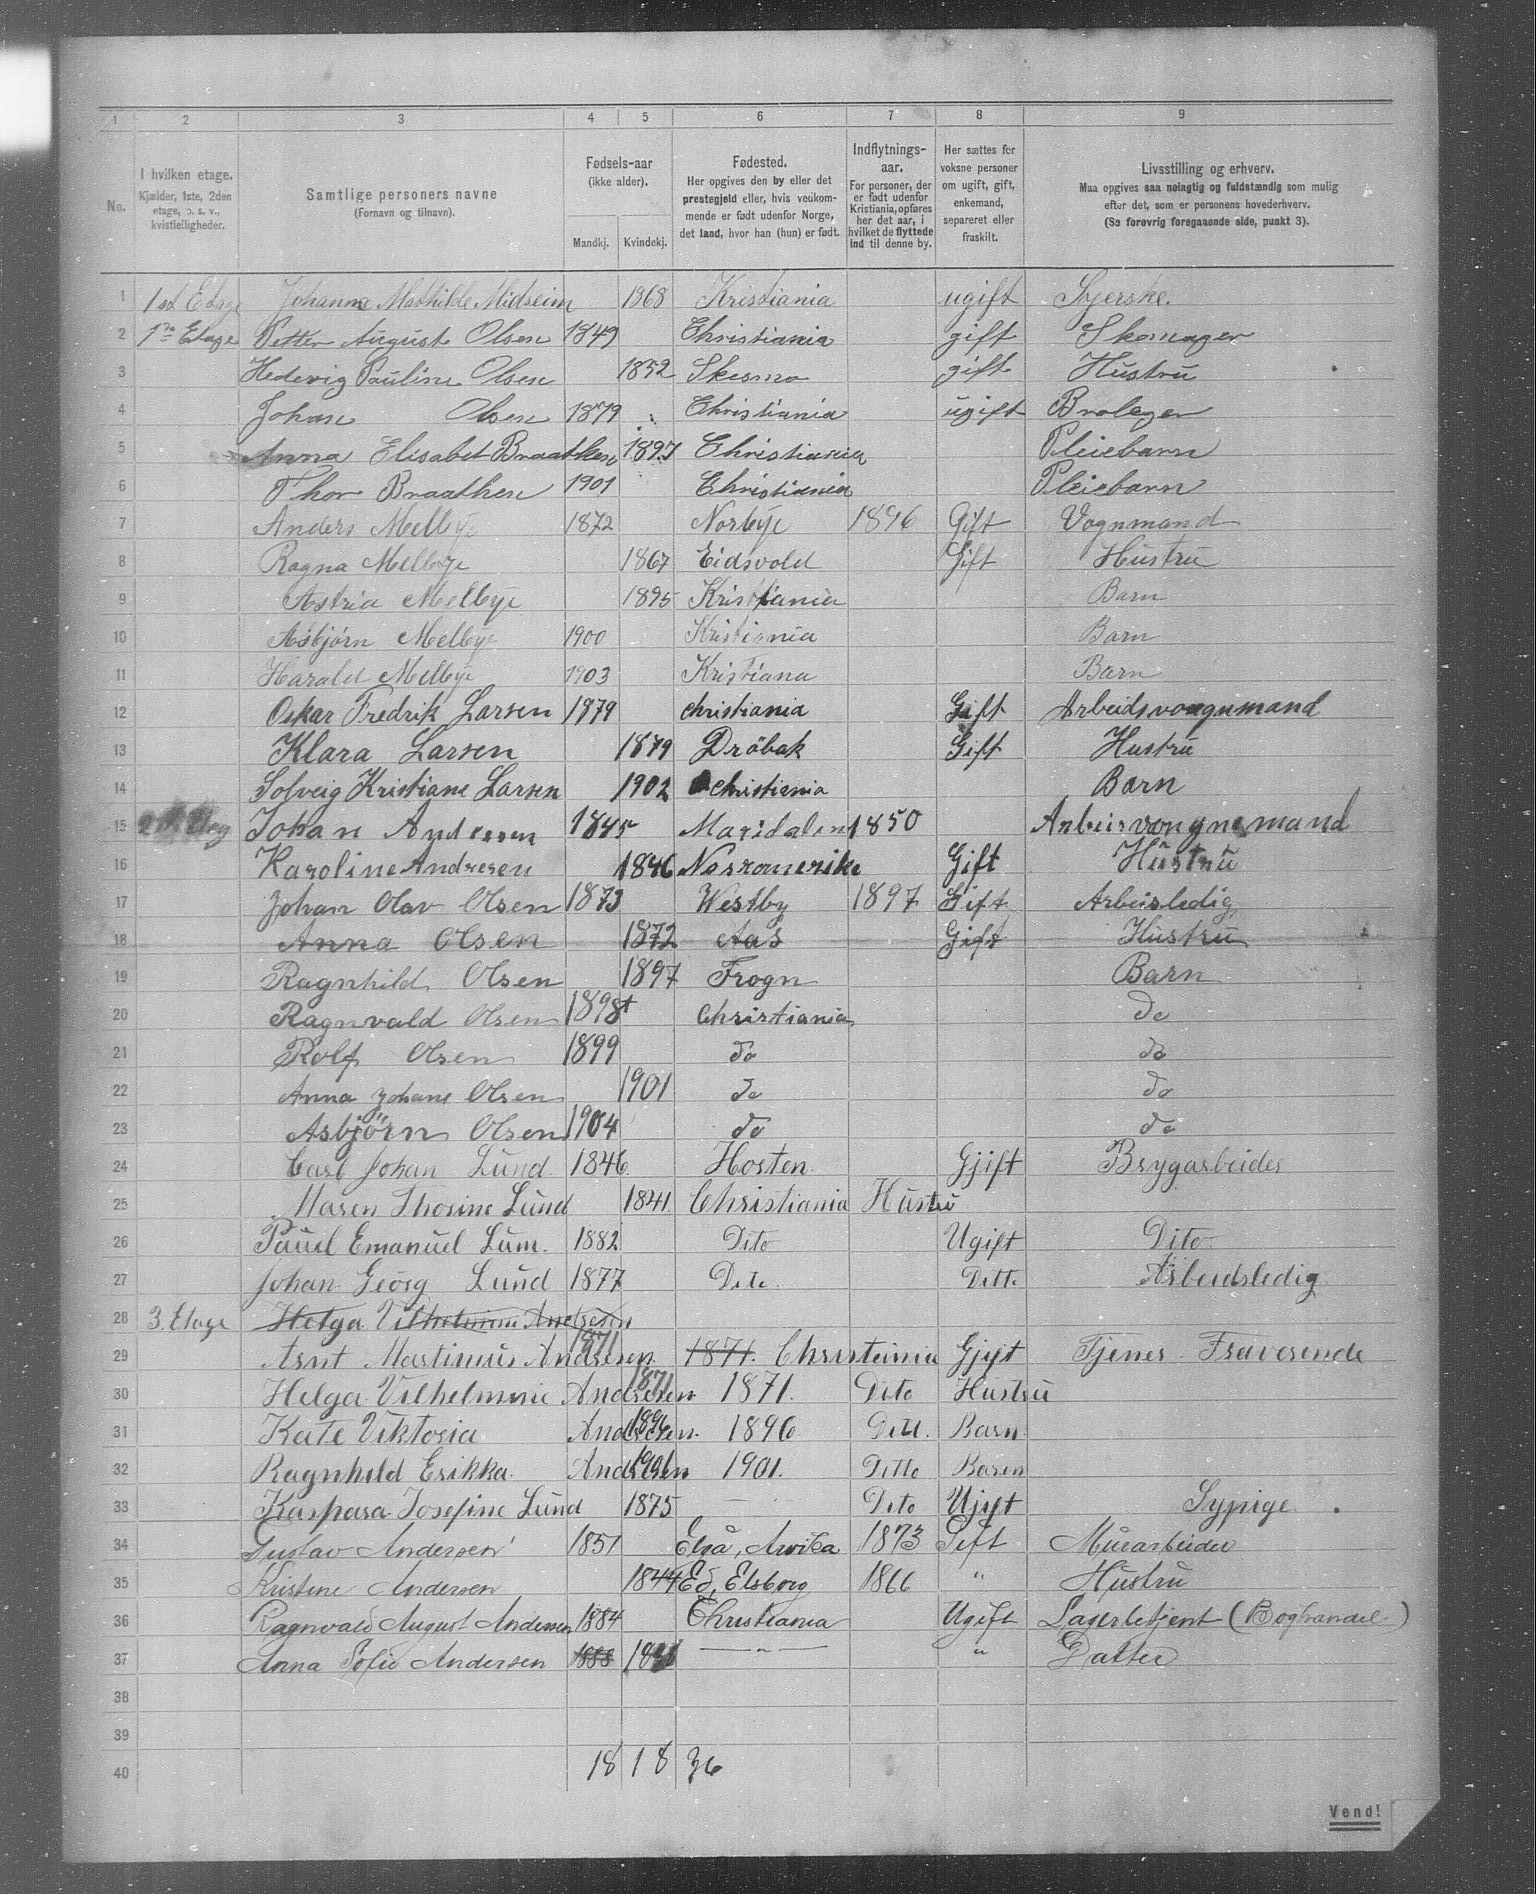 1 2 3 4 5 6 7 8 9
No.
I hvilken etage.
Kjælder, 1ste, 2den
etage, o. s. v.,
kvistleiligheder.
Samtlige personers navne
(Fornavn og tilnavn).
Fødsels-aar
(ikke alder).
Mandkj. Kvindekj.
Fødested.
Her opgives den by eller det
prestegjeld eller, hvis vedkom-
mende er født udenfor Norge,
det land, hvor han (hun) er født.
Indflytnings-
aar.
For personer, der
er født udenfor
Kristiania, opføres
her det aar, i
hvilket de flyttede
ind til denne by.
Her sættes for
voksne personer
om ugift, gift,
enkemand,
separeret eller
fraskilt.
Livsstilling og erhverv.
Maa opgives saa nøiagtig og fuldstændig som mulig
efter det, som er personens hovederhverv.
(Se forøvrig foregaaende side, punkt 3).
1 1st Etage Johanne Mathilde Midseim 1868 Kristiania ugift Syerske.
2 1ste Etage Petter August Olsen 1849 Christiania gift Skomager
3 Hedevig Pauline Olsen 1852 Skesmo gift Hustru
4 Johan Olsen 1879 Christiania ugift Brolegger
5 Anna Elisabet Braathen 1897 Christiania Pleiebarn
6 Thor Braathen 1901 Christiania Pleiebarn
7 Anders Melbye 1872 Norbye 1896 Gift Vognmand
8 Ragna Melbye 1867 Eidsvold Gift Hustru
9 Astria Melbye 1895 Kristiania Barn
10 Asbjørn Melbye 1900 Kristiania Barn
11 Harald Melbye 1903 Kristiana Barn
12 Oskar Fredrik Larsen 1879 christiania Gift Arbeidsvongnmand
13 Klara Larsen 1879 Dröbak Gift Hustru
14 Solveig Kristiane Larsen 1902 Christiania Barn
15 Johan Andresen 1845 Maridalen 1850 Arbeisvongnemand
16 Karoline Andresen 1846 Noromerike Gift Hustru
17 Johan Olav Olsen 1873 Westby 1897 Gift Arbeisledig
18 Anna Olsen 1872 Aas Gift Hustru
19 Ragnhild Olsen 1897 Frogn Barn
20 Ragnvald Olsen 1898 Christiania do
21 Rolf Olsen 1899 do do
22 Anna Johane Olsen 1901 do do
23 Asbjörn Olsen 1904 do do
24 Carl Johan Lund 1846. Hosten. Gjift Brygarbeider
25 Maren Thorine Lund 1841. Christiania Hustru
26 Paul Emanuel Lum. 1882 Dito Ugift Dito
27 Johan Georg Lund 1877 Dito. Ditto Arbeidsledig
28 3. Etage Helga Vilhelmine Andresen
29 Arnt Martinius Andresen. 1871 1871. Christeinia Gjift Tjener Fraverende
30 Helga Vilhelmine Andresen 1871 1871. Dito Hustru
31 Kate Viktoria Andresen. 1896 1896 Ditt. Barn
32 Ragnhild Erikka. Andresen 1901 1901. Ditto Baren
33 Kaspara Josefine Lund 1875 — Dito Ujift Sypige.
34 Gustav Andersen 1851 Elsa, Arvika 1873 Gift Murarbeider
35 Kristine Andersen 1844 Ed, Elsborg 1866 " Hustru
36 Ragnvald August Andersen 1884 Christiania Ugift Lagerbetjent (Boghandel)
37 Anna Sofie Andersen 1888 — " — " Datter
38
39
40 18 18 36
Vend!